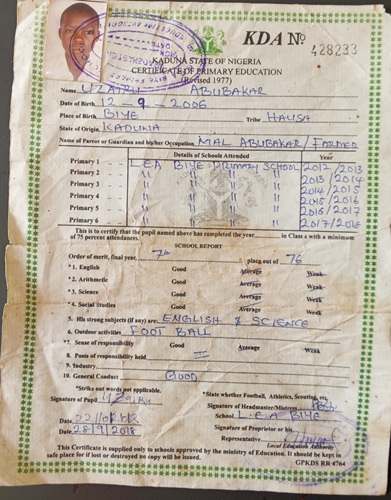 KDA No 428233
KADUNA STATE OF NIGERIA
CERTIFICATE OF PRIMARY EDUCATION
(Revised 1977)
Name UZAIRU ABUBAKAR
Date of Birth 12-9-2006
Place of Birth BIYE Tribe HAUSA
State of Origin KADUNA
Name of Parent or Guardian and his/her Occupation MAL ABUBAKAR / FARMER
Details of Schools Attended Year
Primary 1 LEA BIYE PRIMARY SCHOOL 2012/2013
Primary 2 " " " " 2013/2014
Primary 3 " " " " 2014/2015
Primary 4 " " " " 2015/2016
Primary 5 " " " " 2016/2017
Primary 6 " " " " 2017/2018
This is to certify that the pupil named above has completed the year in Class 6 with a minimum
of 75 percent attendances.
SCHOOL REPORT
Order of merit, final year. 7th place out of 76
*1. English Good Average Weak
*2. Arithmetic Good Average Weak
*3. Science Good Average Weak
*4. Social Studies Good Average Weak
5. His strong subjects (if any) are: ENGLISH & SCIENCE
6. Outdoor activities FOOT BALL
*7. Sense of responsibility Good Average Weak
8. Posts of responsibility held
9. Industry
10. General Conduct GOOD
*Strike out words not applicable. *State whether Football, Athletics, Scouting, etc.
Signature of Pupil Signature of Headmaster/Mistress
Date School L.E.A BIYE
Date 28/9/2018 Signature of Proprietor or his
Representative
Local Education Authority
This Certificate is supplied only to schools approved by the ministry of Education. It should be kept in
safe place for if lost or destroyed no copy will be issued. GPKDS RR 4764